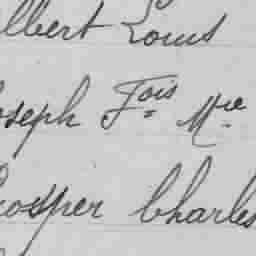 lbert Louis
oseph Fois Mie
rosper Charles